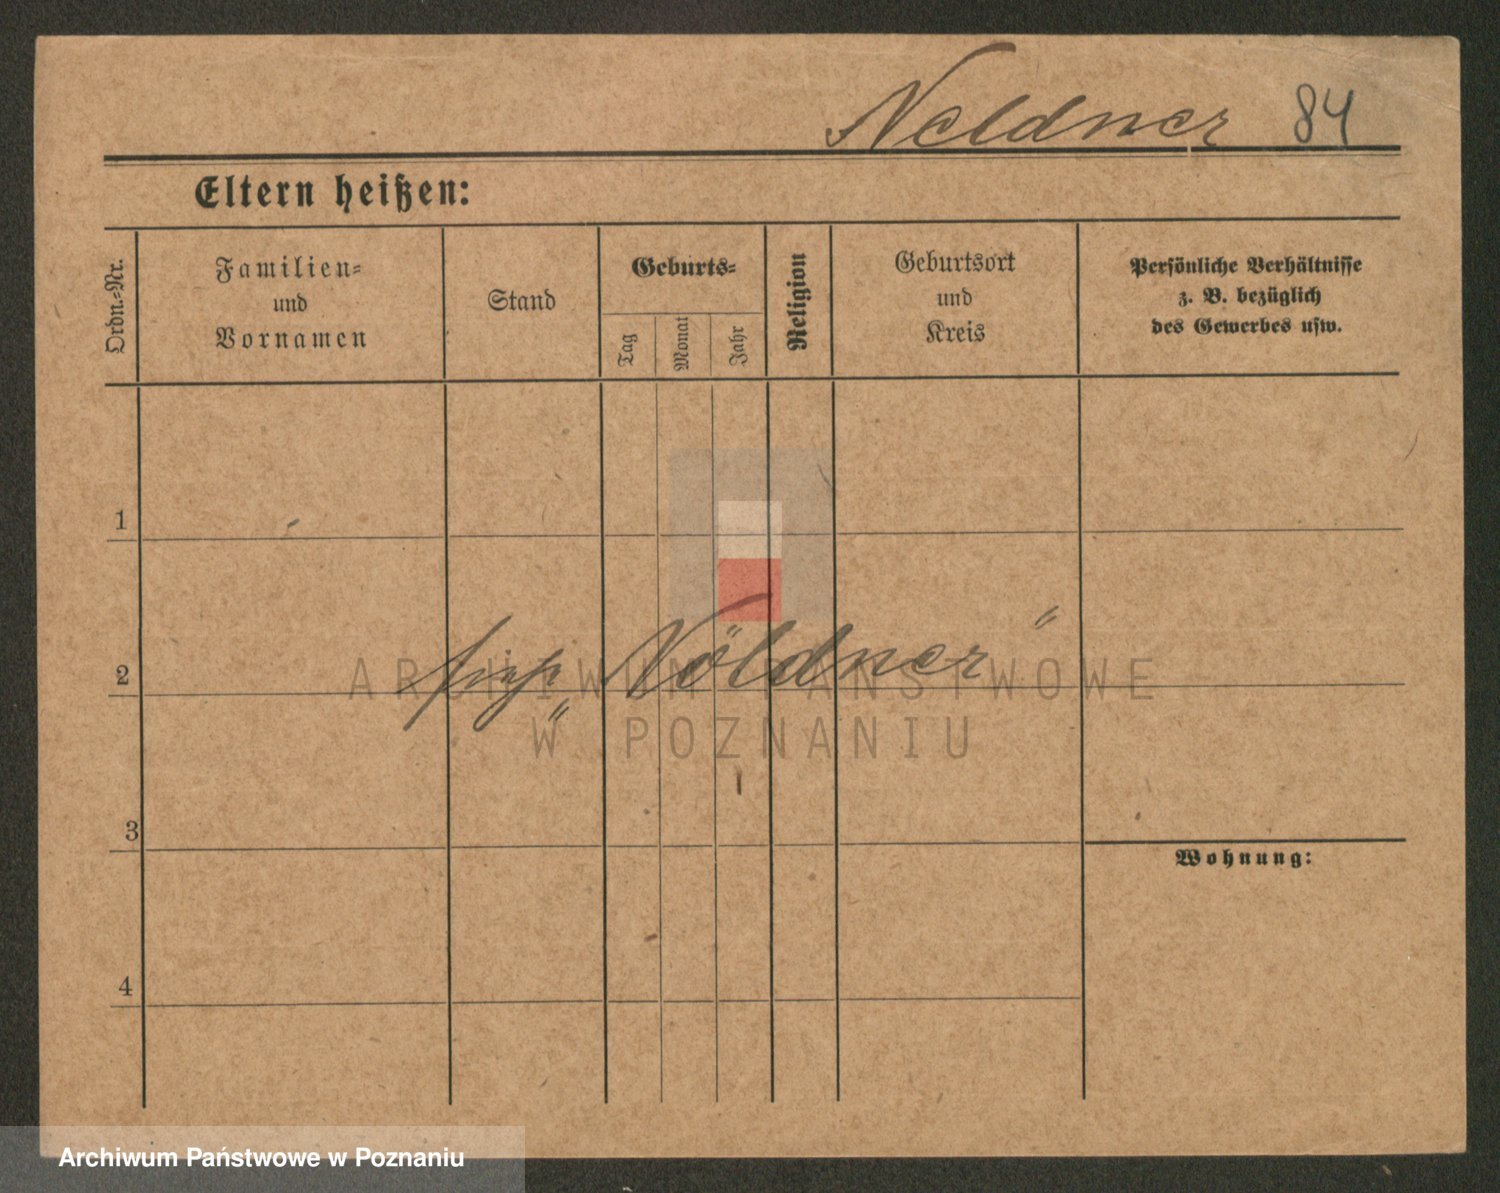 Neldner 84
Eltern heißen:
Ordn.-Nr.
Familien-
und
Vornamen
Stand
Geburts-
Tag
Monat
Jahr
Religion
Geburtsort
und
Kreis
Persönliche Verhältnisse
z. B. bezüglich
des Gewerbes usw.
1
2
siehe „Nöldner"
ARCHIWUM PAŃSTWOWE
W POZNANIU
3
Wohnung:
4
Archiwum Państwowe w Poznaniu